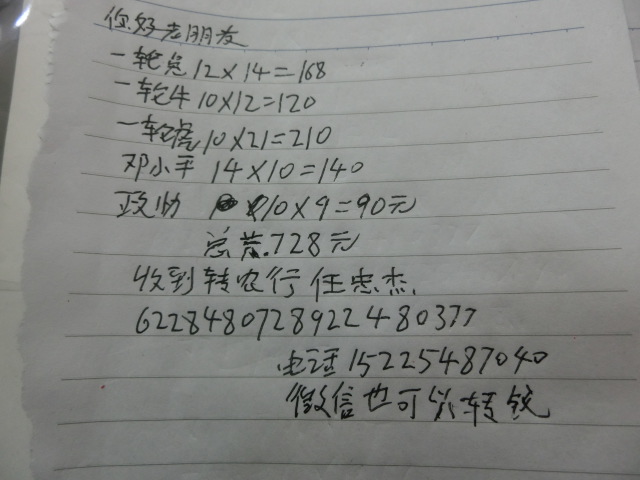 你好老朋友
一轮兔12×14=168
一轮牛10×12=120
一轮虎10×21=210
邓小平 14×10=140
政协 10×9=90元
总共.728元
收到转农行 任忠杰.
6228480728922480377
电话15225487040
微信也可以转钱